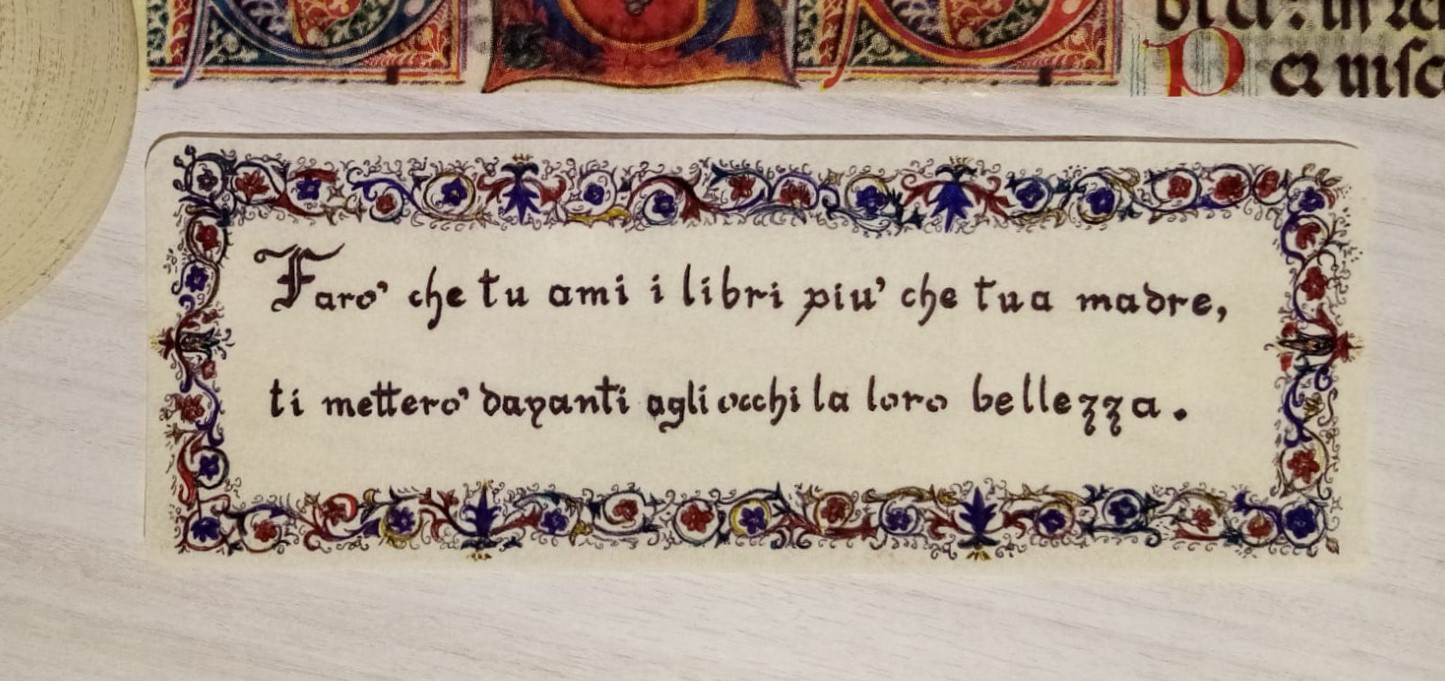 Faro' che tu ami i libri piu' che tua madre,
ti mettero' davanti agli occhi la loro bellezza.